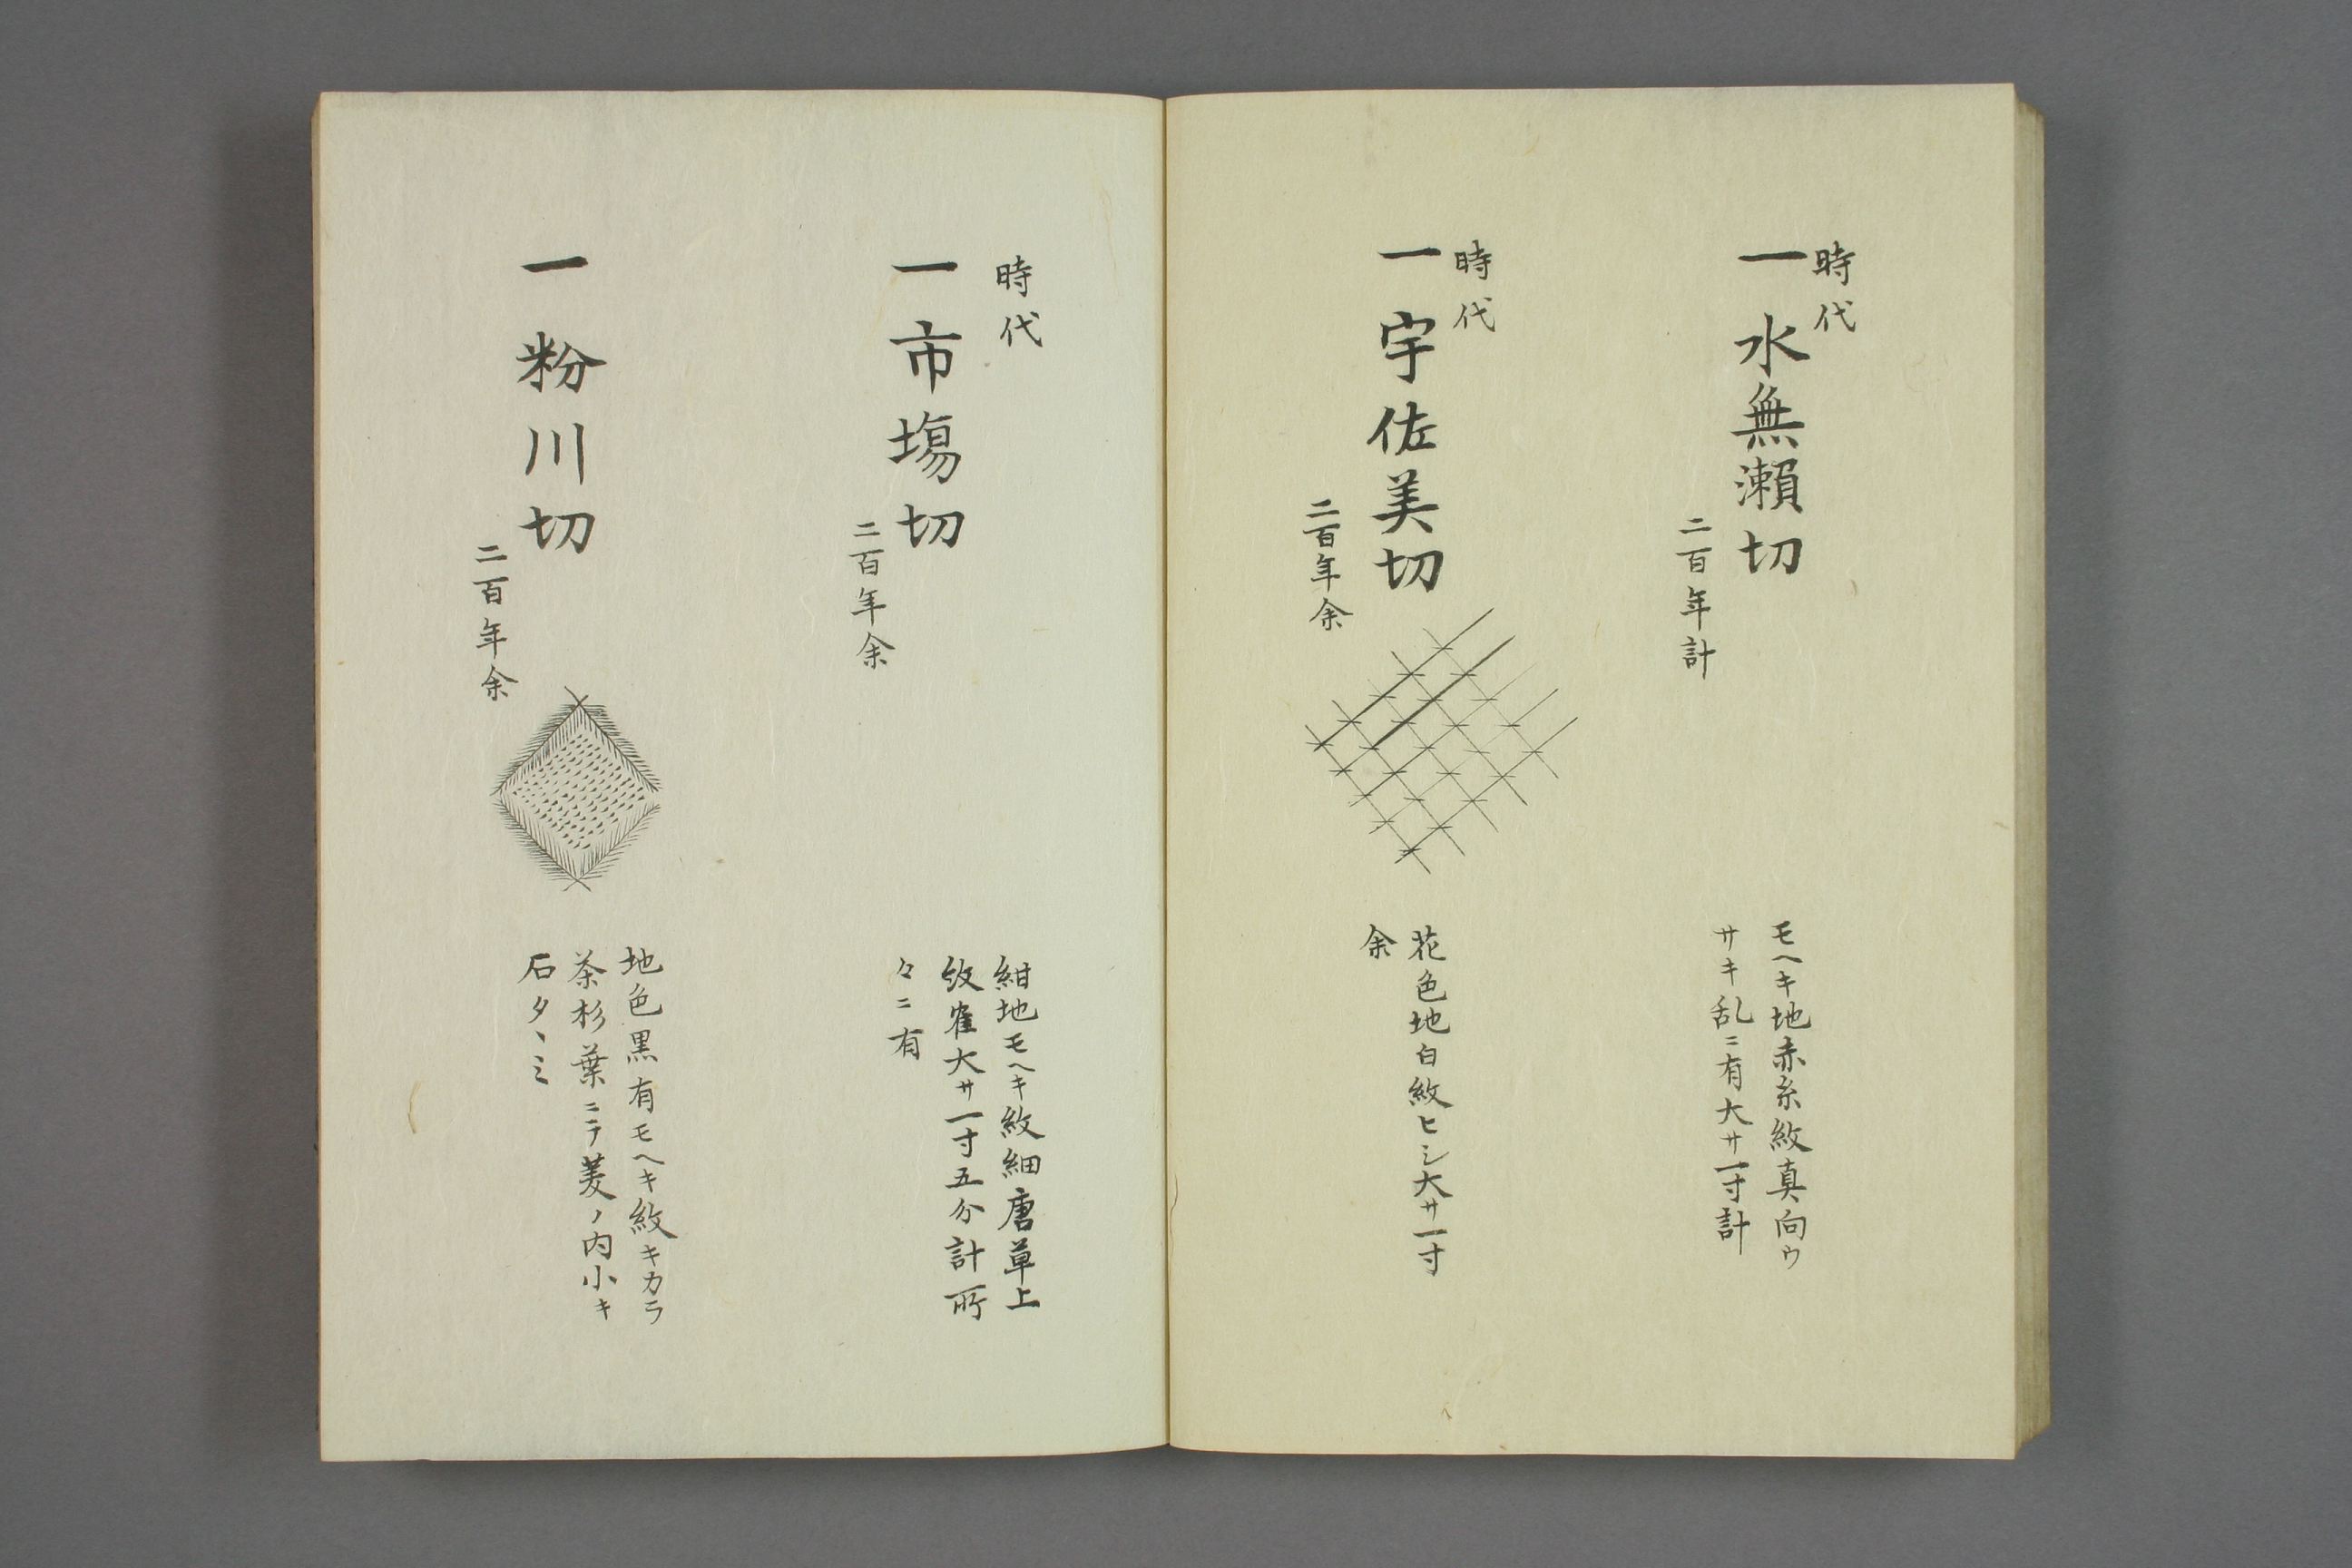 時代
一水無瀬切
二百年計
モヘキ地赤糸紋真向ウ
サキ乱ニ有大サ一寸計
時代
一宇佐美切
二百年余
花色地白紋ヒシ大サ一寸
余
時代
一市場切
二百年余
紺地モヘキ紋細唐草上
紋雀大サ一寸五分計所
々ニ有
一粉川切
二百年余
地色黒有モヘキ紋キカラ
茶杉葉ニテ菱ノ内小キ
石タヽミ